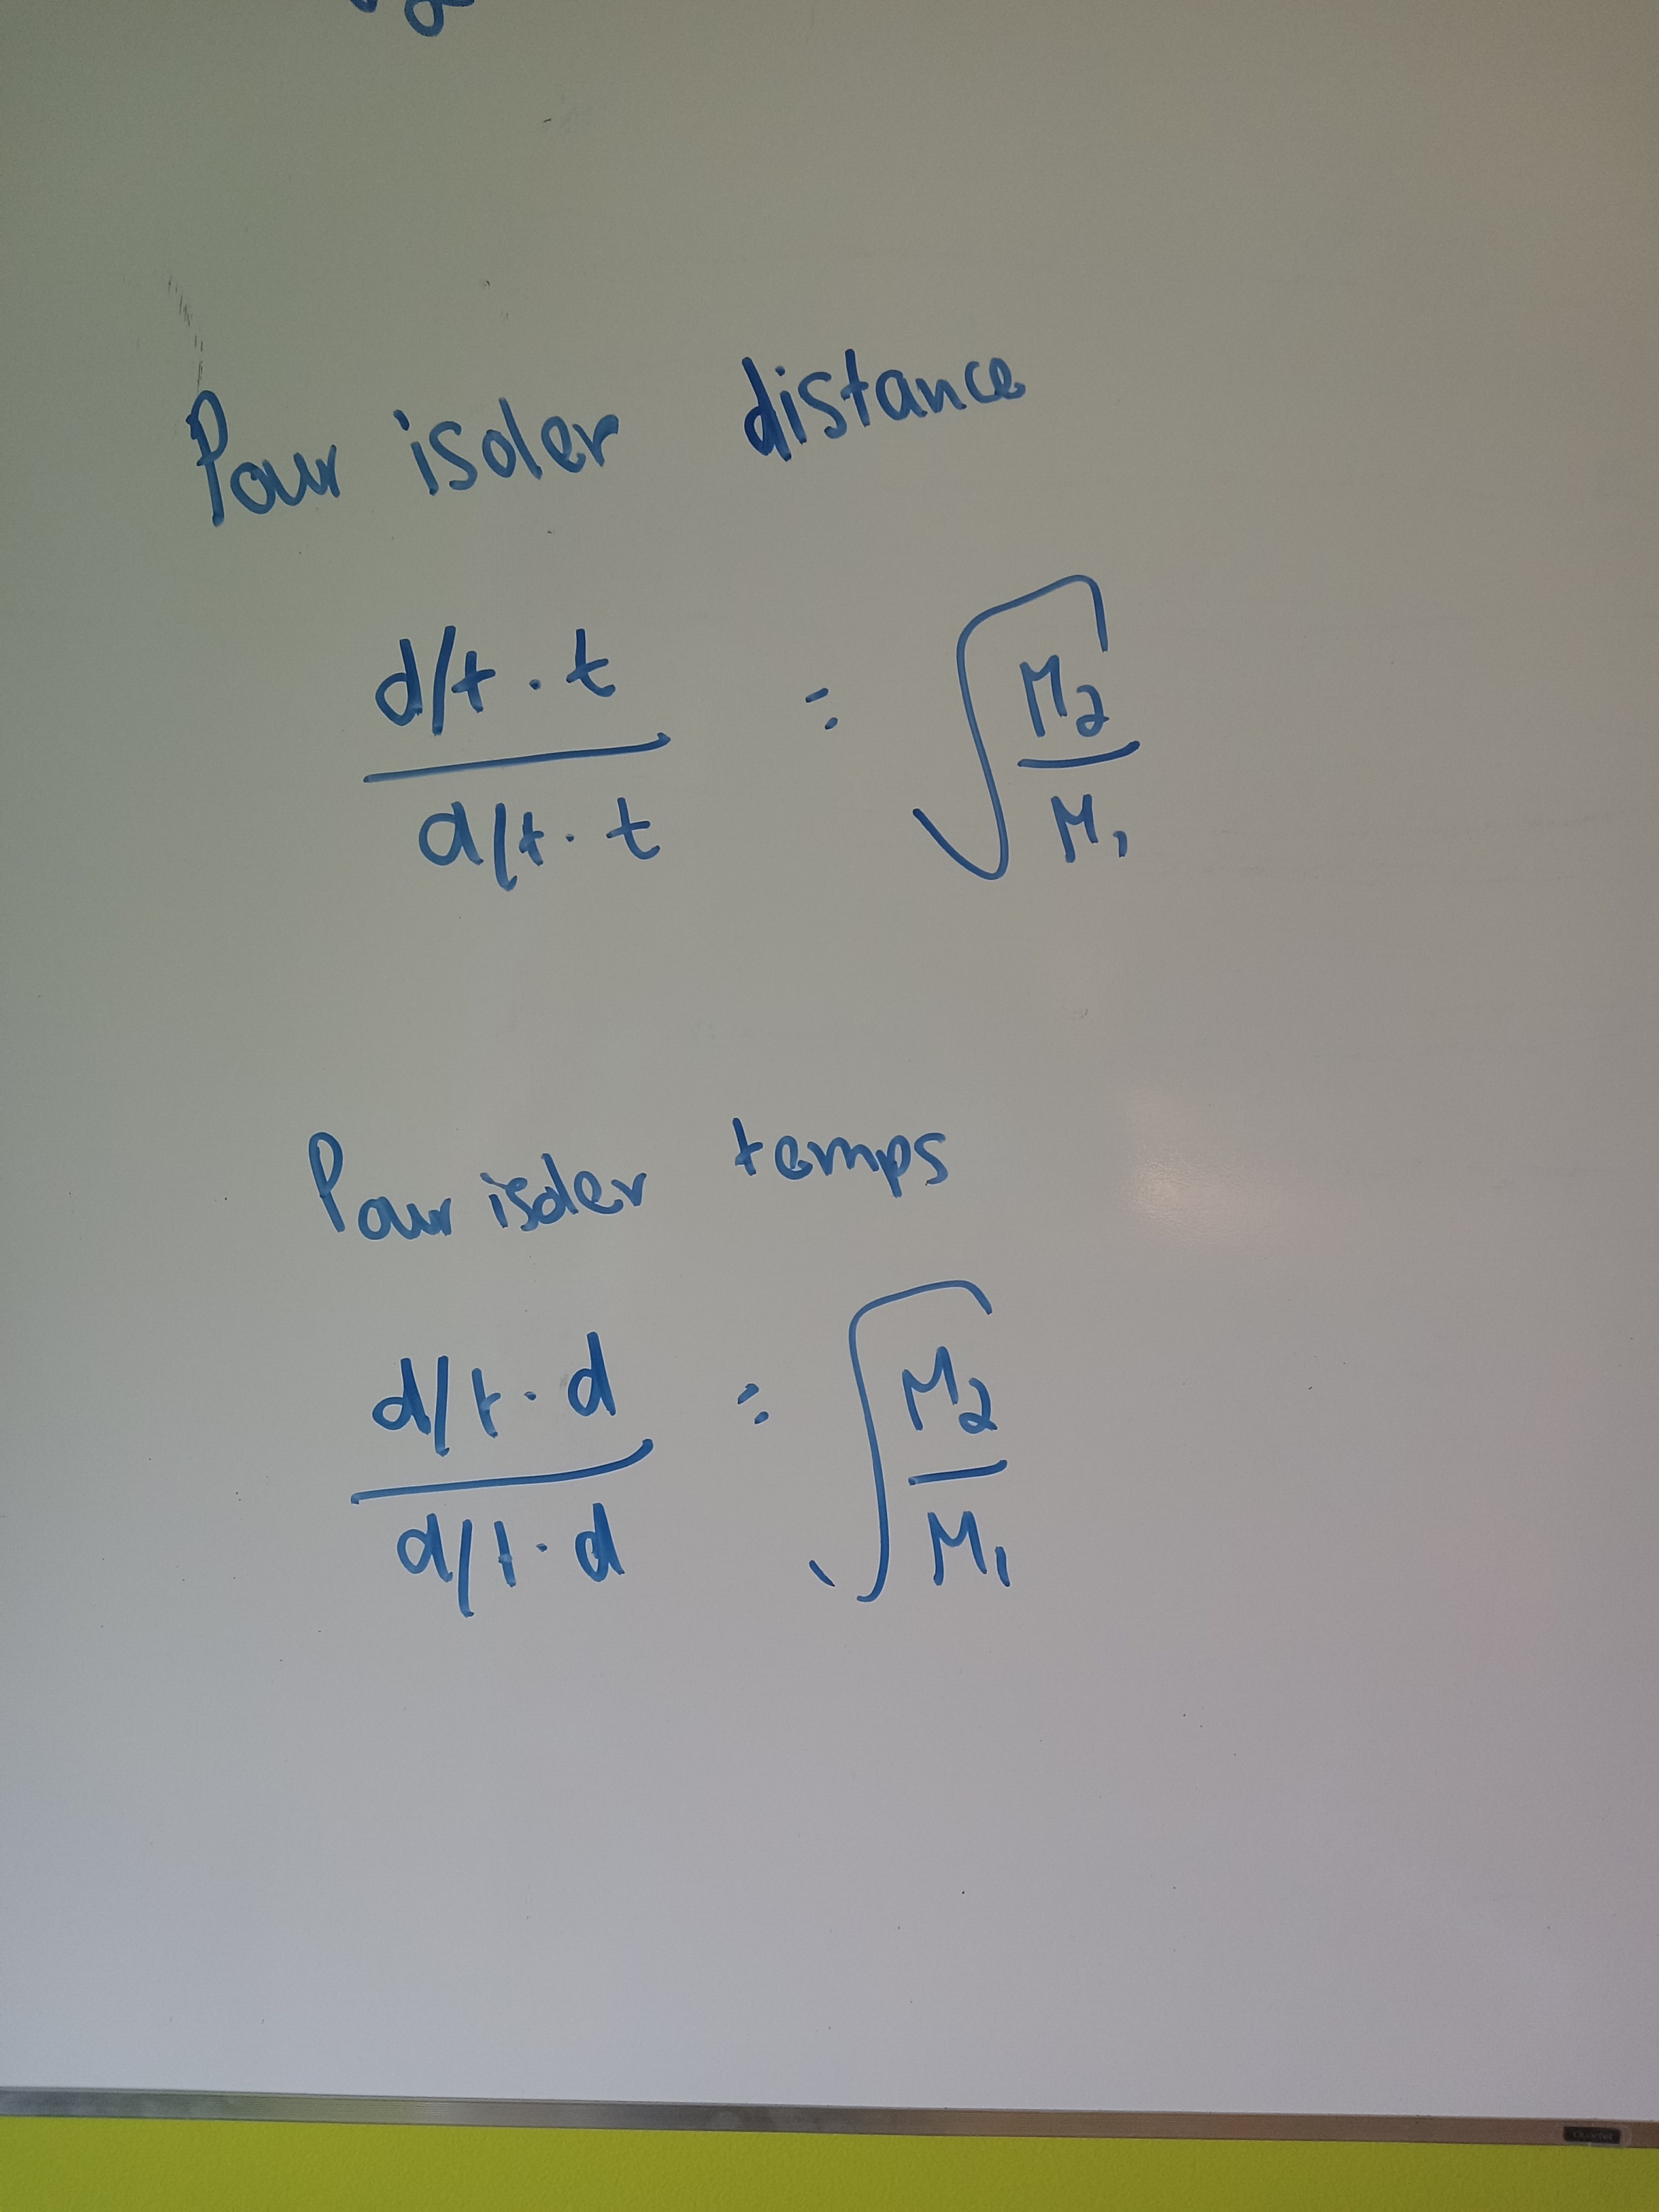 Pour isoler distance
d/t · t
d/t · t
= √ M2
M1
Pour isoler temps
d/t · d
d/t · d
= √ M2
M1
Quartet